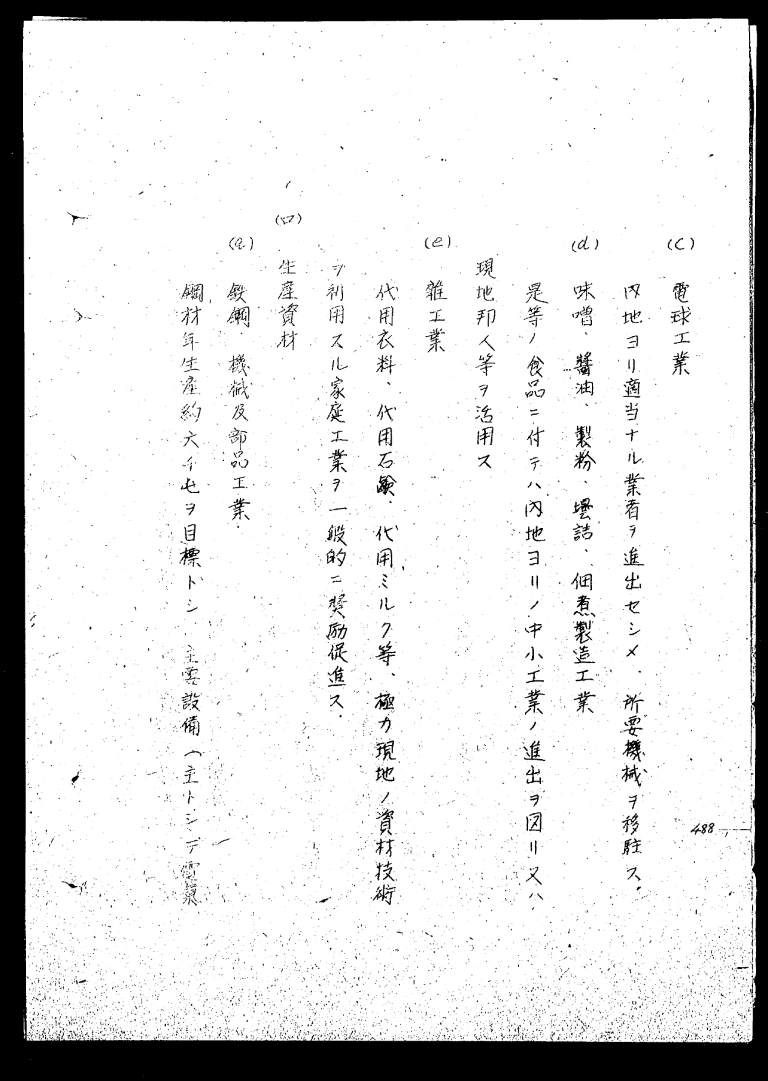 (c) 電球工業
内地ヨリ適当ナル業者ヲ進出セシメ、所要機械ヲ移駐ス、
(d) 味噌、醬油、製粉、壜詰、佃煮製造工業
是等ノ食品ニ付テハ内地ヨリノ中小工業ノ進出ヲ図リ又ハ
現地邦人等ヲ活用ス
(e) 雑工業
代用衣料、代用石鹸、代用ミルク等、極力現地ノ資材技術
ヲ利用スル家庭工業ヲ一般的ニ奨励促進ス、
(ロ) 生産資材
(a) 鉄鋼 機械及部品工業
鋼材年生産約六千屯ヲ目標トシ 主要設備（主トシテ電気
488